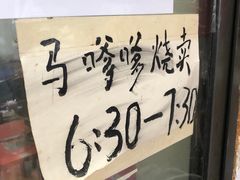 马嗲嗲烧卖
6:30-7:30